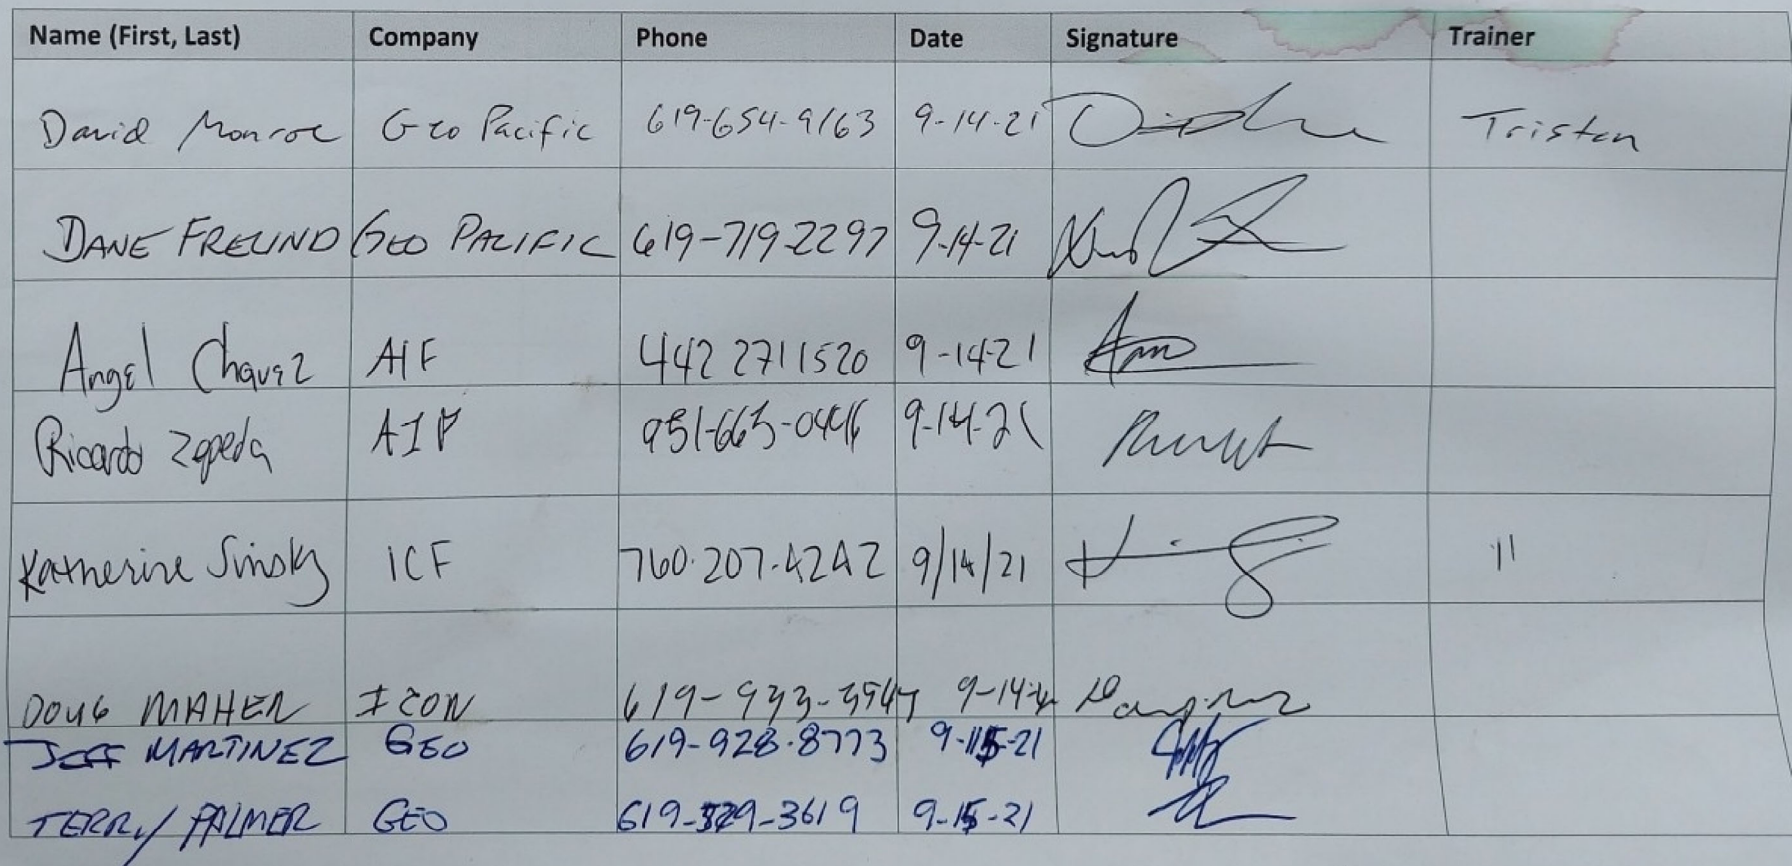 Name (First, Last) Company Phone Date Signature Trainer
David Monroe Geo Pacific 619-654-9163 9-14-21 Tristan
DANE FREUND GEO PACIFIC 619-719-2297 9-14-21
Angel Chavez AIF 442 2711520 9-14-21
Ricardo Zepeda 9-14-21
Katherine ICF 760.207.4242 9/14/21 11
DOUG MAHER ICON
JEFF MARTINEZ GEO 619-928-8773 9-15-21
TERRY PALMER GEO 9-15-21